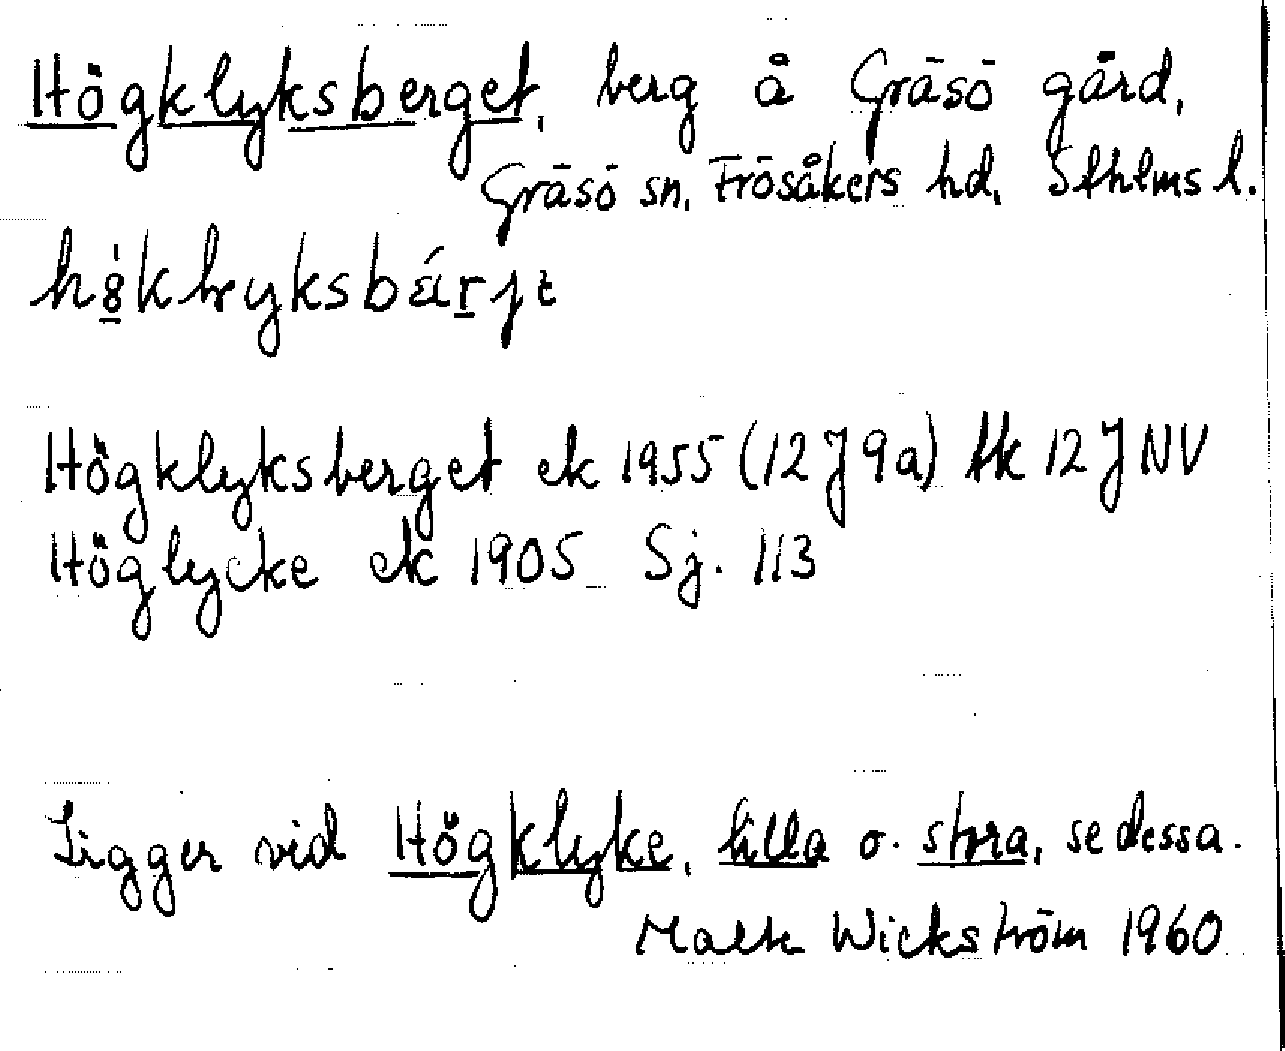 Högklyksberget, berg å Gräsö gård,
Gräsö sn, Frösåkers hd, Sthlms l.
Högklyksberget ek 1955 (12J9a) tk 12J NV
Höglycke ek 1905 Sj. 113
Ligger vid Högklyke, lilla o. stora, se dessa.
Wickström 1960